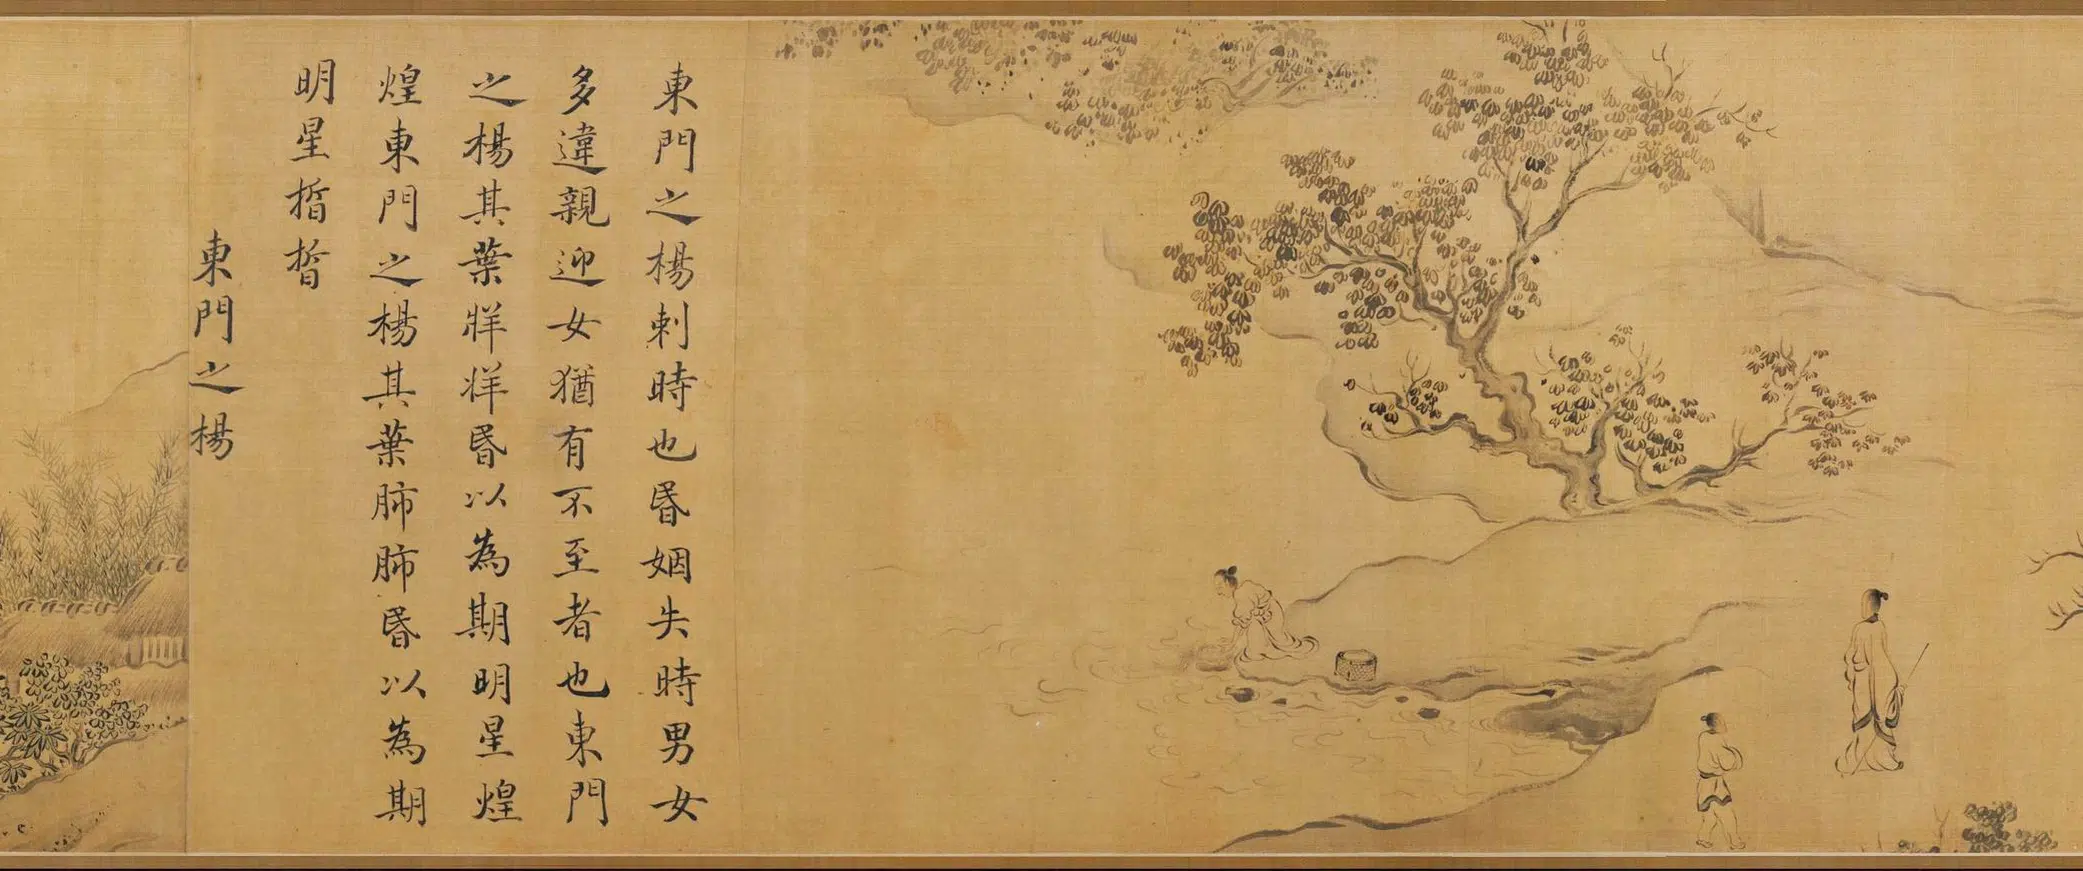 東門之楊刺時也昬姻失時男女
多違親迎女猶有不至者也東門
之楊其葉牂牂昬以為期明星煌
煌東門之楊其葉肺肺昬以為期
明星晢晢
東門之楊